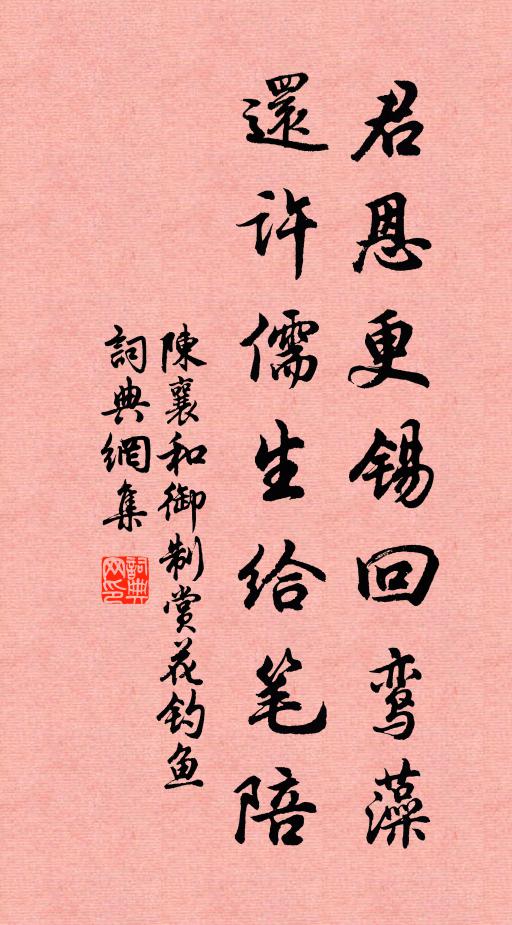 君恩更锡回鸾藻
還许儒生给笔陪
陳襄和御制赏花钓鱼
詞典網集
詞典网印